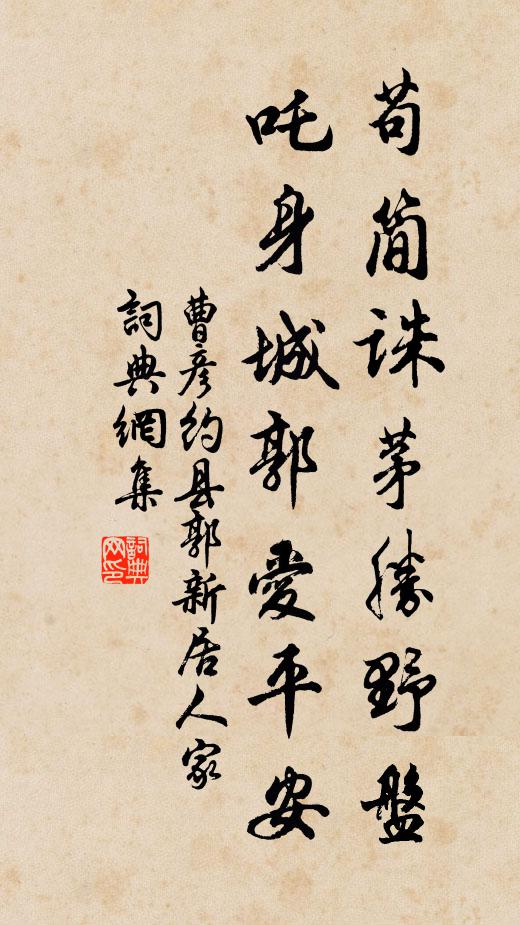 苟简誅茅勝野盤
吒身城郭愛平安
曹彦约县郭新居人家
詞典網集
詞典網印